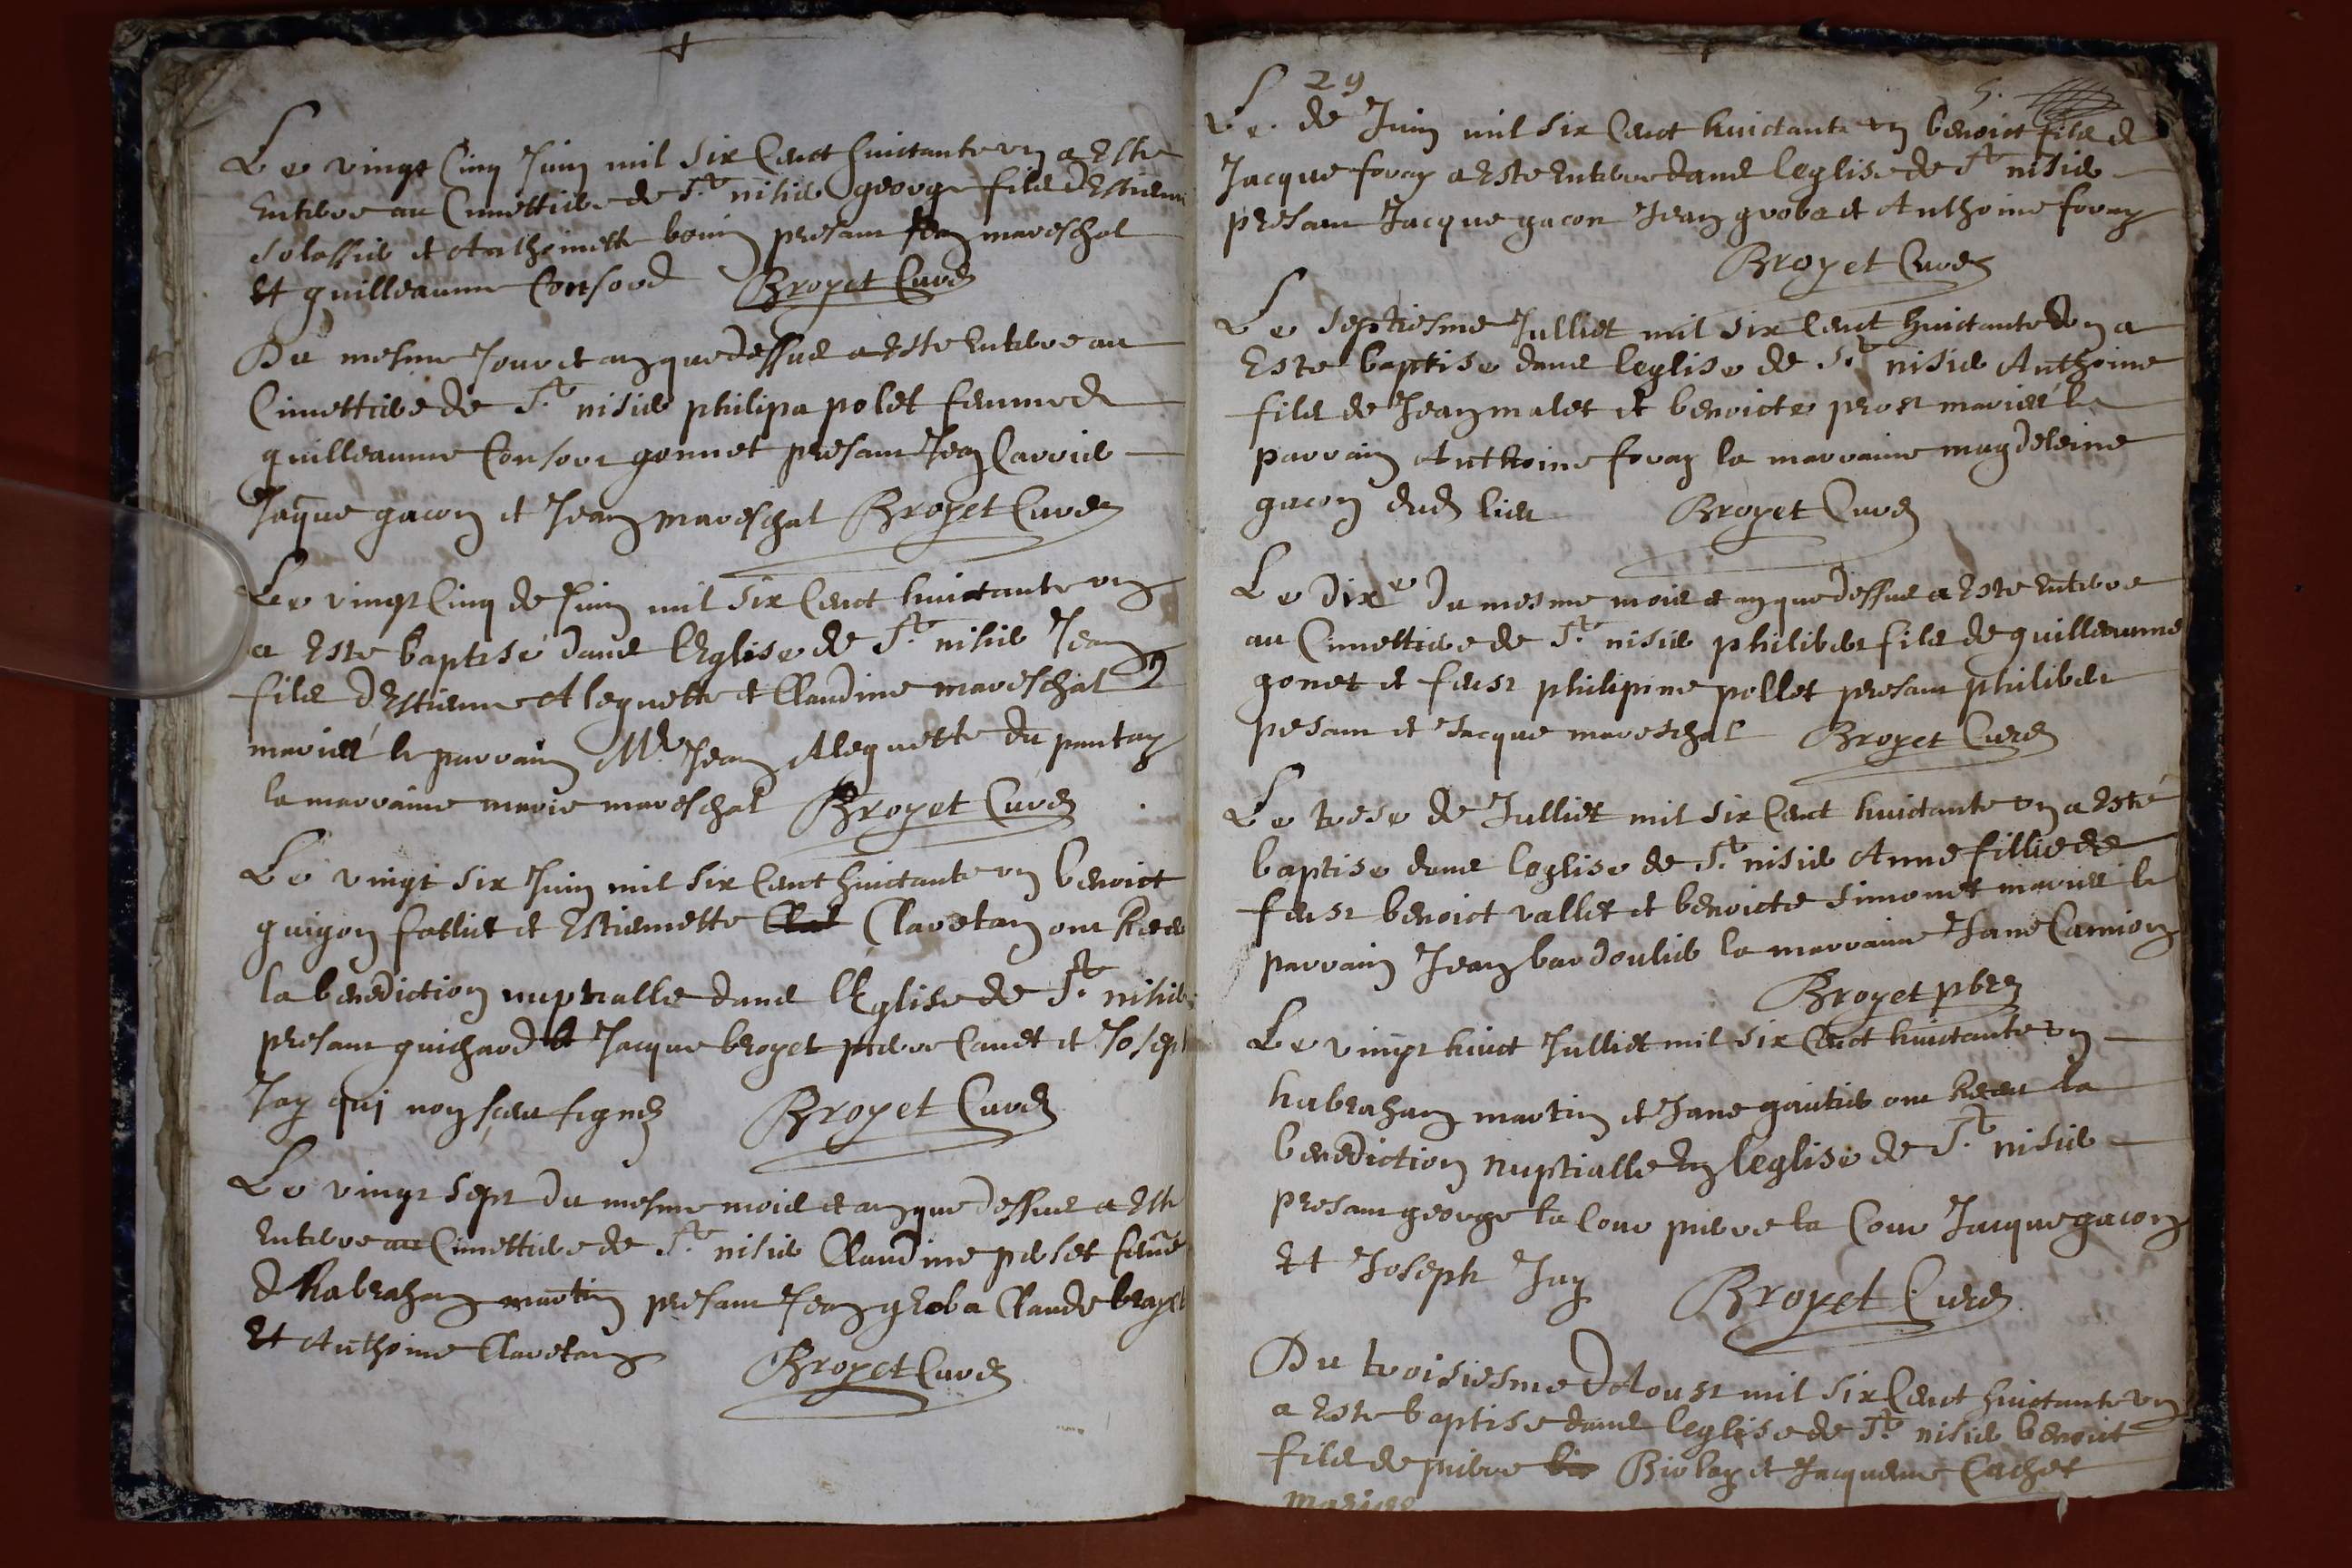 Le vingt Cinq Juin mil six Cent huictante un a Este
Enterre au Cimettiere de St nisier george fils dEstienne
solassier et Anthoinette bouin presant Jean mareschal
Et guilleaume Consord Broyet Curé
Du mesme Jour et an que dessus a Este Enterre au
Cimettiere de St nisier philipa polet femme de
guilleaume Consort gonnet presant Jean Carrier
Jaque gacon et Jean mareschal Broyet Curé
Le vingt Cinq de Juin mil six Cent huictante un
a Este baptisé dans lEglise de St nisier Jean
fils dEstienne Alequette et Claudine mareschal
mariés le parrain Mr Jean Alequette du pantay
la marraine marie mareschal Broyet Curé
Le vingt six Juin mil six Cent huictante un benoict
guigon fatliet et Estiennette Clavetan ont Receu
la benediction nuptialle dans lEglise de St nisier
presant guichard et Jacque broyet pierre Canet et Josep
Jay qui non sceu signé Broyet Curé
Le vingt sept du mesme mois et an que dessus a Este
Enterre au Cimettiere de St nisier Claudine perset feme
dHabraham martin presant Jean groba Claude brayet
Et Anthoine Clavetan Broyet Curé
29
5.
Le de Juin mil six Cent huictante un benoict fils de
Jacque foray a Este Enterre dans leglise de St nisier
presant Jacque gacon Jean groba et Anthoine foray
Broyet Curé
Le septiesme Julliet mil six Cent huictante un a
Este baptise dans leglise de St nisier Anthoine
fils de Jean malet et benoicte prost mariés le
parrain Anthoine foray la marraine magdeleine
gacon dud lieu Broyet Curé
Le dixe du mesme mois et an que dessus a Este Enterre
au Cimettiere de St nisier philibert fils de guilleaume
gonet et feust philipine pollet presant philibert
pesant et Jacque mareschal Broyet Curé
Le trese de Julliet mil six Cent huictante un a Esté
baptise dans leglise de St nisier Anne fillie de
feust benoict vallet et benoicte simonet mariés le
parrain Jean bardoulier la marraine Jane Camion
Broyet pbre
Le vingt huict Julliet mil six Cent huictante un
habraham martin et Jane gautier ont Receu la
benediction nuptialle En leglise de St nisier
presant george la Cour pierre la Cour Jacque gacon
Et Joseph Jay Broyet Curé
Du troisiesme dAoust mil six Cent huictante un
a Este baptise dans leglise de St nisier benoict
fils de pierre bio Biolay et Jacqueme Cachet
mariés